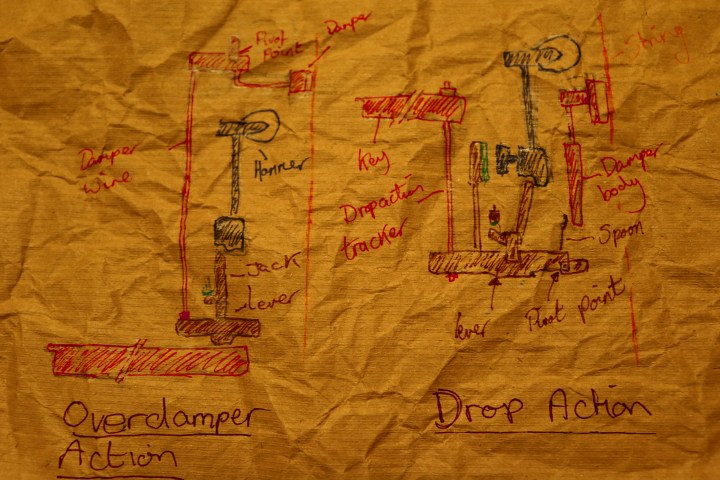 Pivot
Point
Damper
Damper
wire
Hammer
Jack
Lever
Overdamper
Action
String
Key
Dropaction
tracker
Damper
body
Spoon
lever
Pivot point
Drop Action